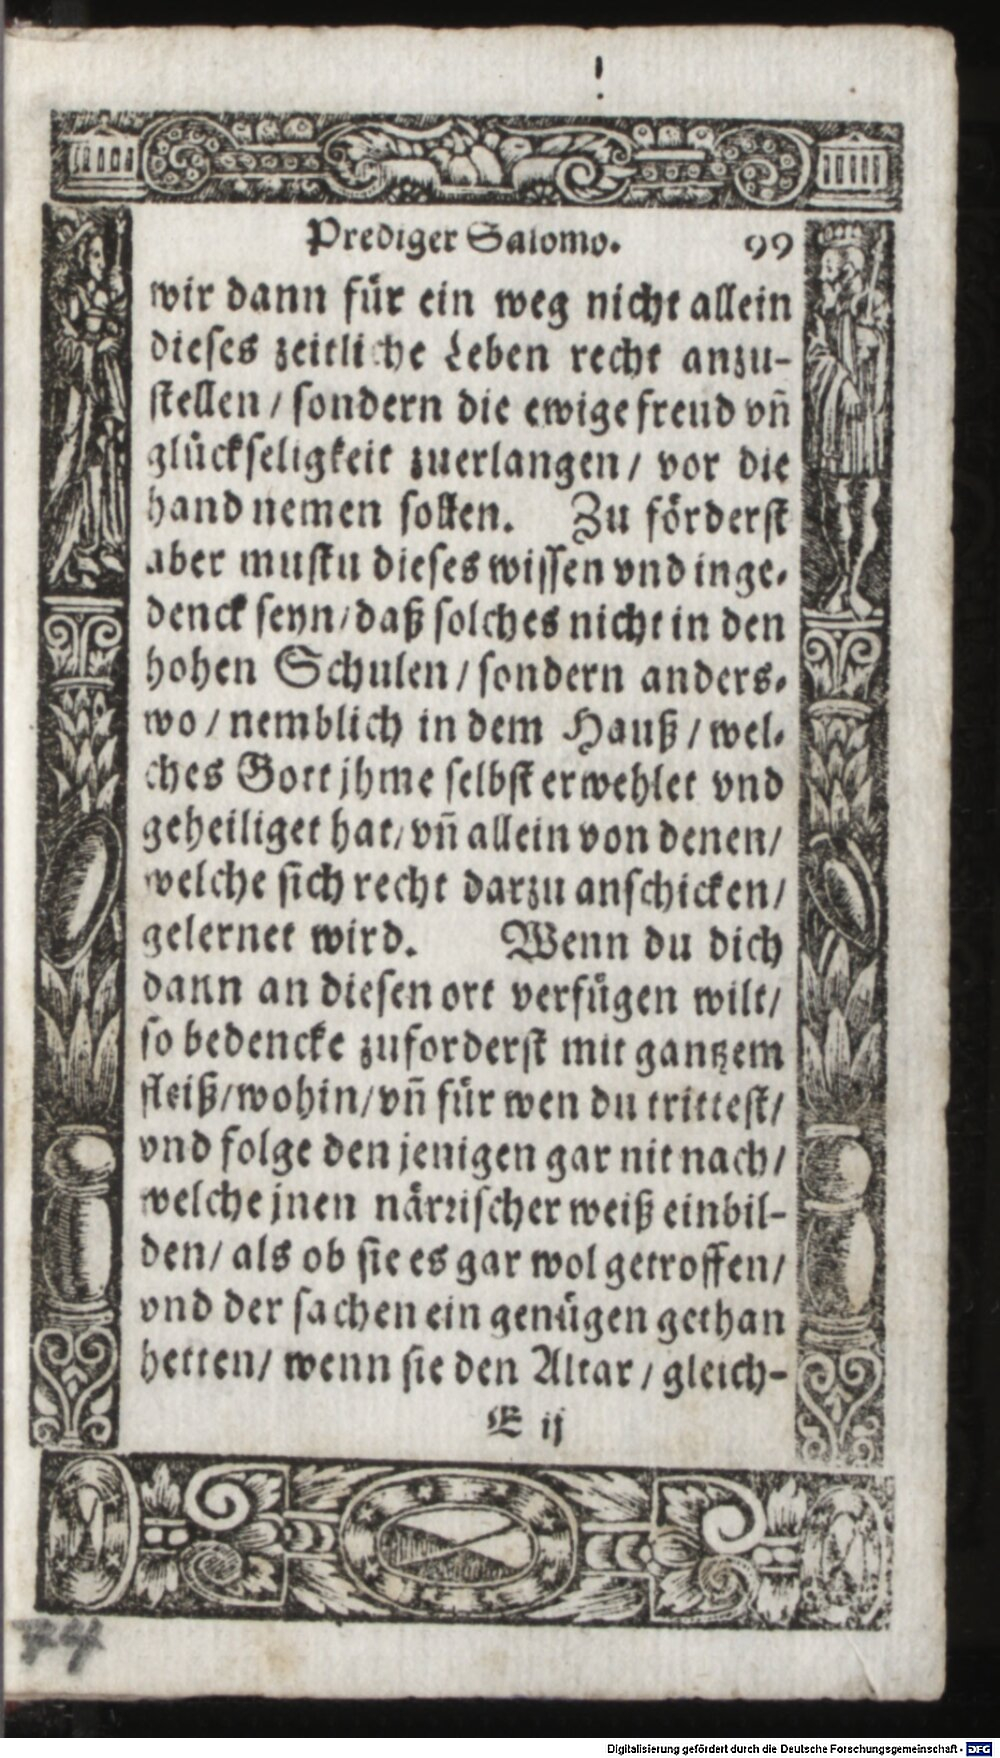 Prediger Salomo. 99
wir dann für ein weg nicht allein
dieses zeitliche Leben recht anzu-
stellen / sondern die ewige freud vñ
glückseligkeit zuerlangen / vor die
hand nemen sollen. Zu förderst
aber mustu dieses wissen vnd inge-
denck seyn / daß solches nicht in den
hohen Schulen / sondern anders-
wo / nemblich in dem Hauß / wel-
ches Gott jhme selbst erwehlet vnd
geheiliget hat / vñ allein von denen /
welche sich recht darzu anschicken /
gelernet wird. Wenn du dich
dann an diesen ort verfügen wilt /
so bedencke zuforderst mit gantzem
fleiß / wohin / vñ für wen du trittest /
vnd folge den jenigen gar nit nach /
welche jnen närrischer weiß einbil-
den / als ob sie es gar wol getroffen /
vnd der sachen ein genügen gethan
hetten / wenn sie den Altar / gleich-
E ij
74
Digitalisierung gefördert durch die Deutsche Forschungsgemeinschaft - DFG